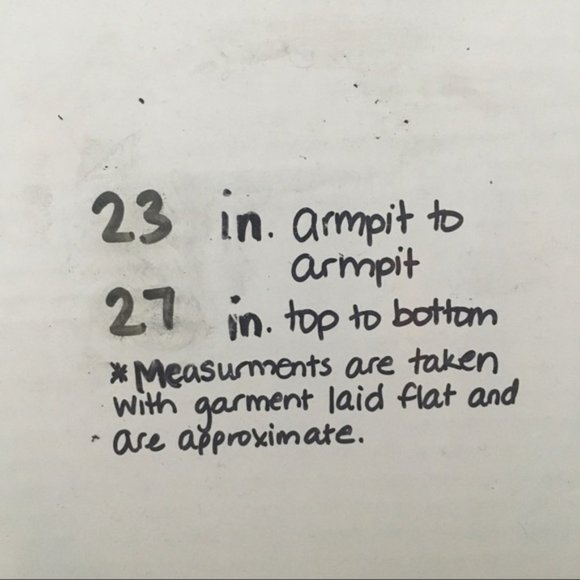 23 in. armpit to
armpit
27 in. top to bottom
*Measurments are taken
with garment laid flat and
are approximate.